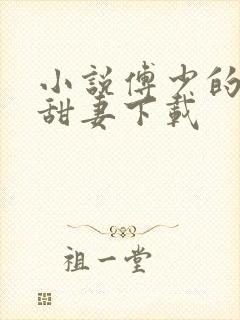 小說傅少的
甜妻下載
祖一堂